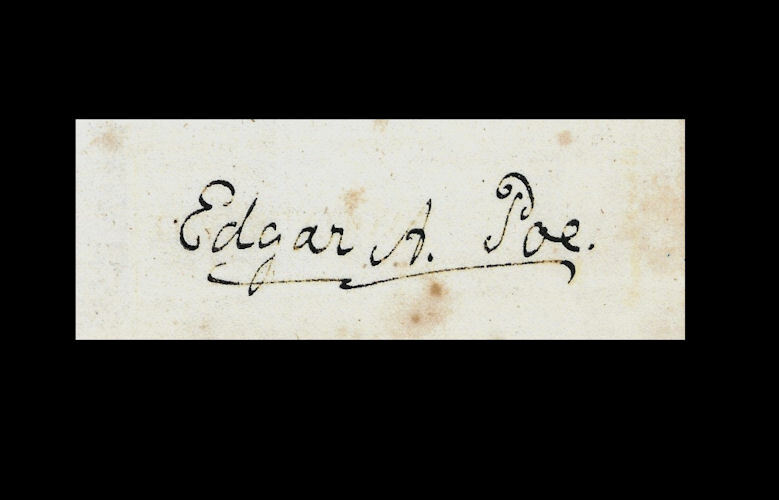 Edgar A. Poe.